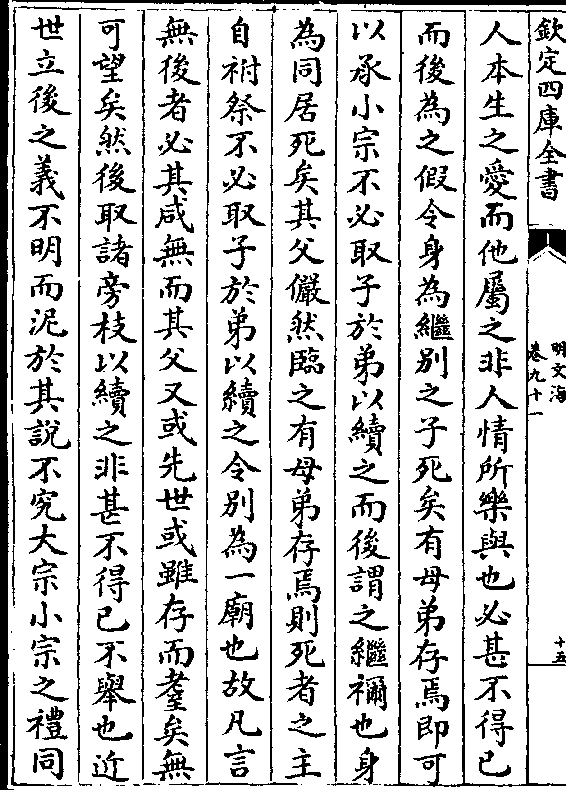 欽定四庫全書
明文海
卷九十一
十五
人本生之愛而他屬之非人情所樂與也必甚不得已
而後為之假令身為繼別之子死矣有母弟存焉即可
以承小宗不必取子於弟以續之而後謂之繼禰也身
為同居死矣其父儼然臨之有母弟存焉則死者之主
自祔祭不必取子於弟以續之令別為一廟也故凡言
無後者必其咸無而其父又或先世或雖存而耄矣無
可望矣然後取諸旁枝以續之非甚不得已不舉也近
世立後之義不明而泥於其說不究大宗小宗之禮同